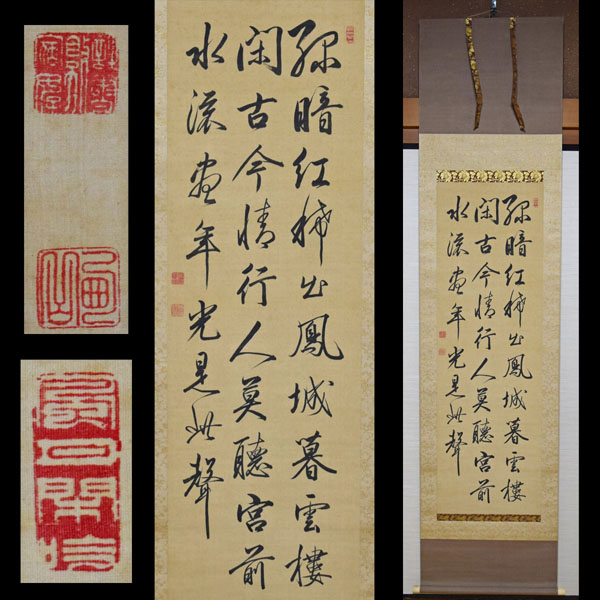 綠暗紅稀出鳳城暮雲樓
閣古今情行人莫聽宮前
水流盡年光是此聲
綠暗紅稀出鳳城暮雲樓
閣古今情行人莫聽宮前
水流盡年光是此聲